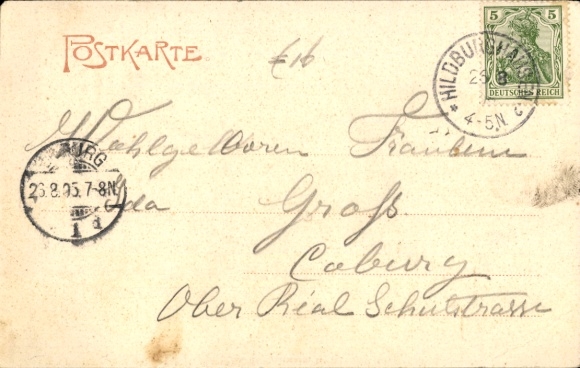 POSTKARTE.
€16
5 5
DEUTSCHES REICH
* HILDBURGHAUSEN
26 8
4-5N. c
Wohlgeboren Fräulein
BURG
26.8.05.7-8N.
1 d
Ida Groß
Coburg
Ober Real Schulstrasse